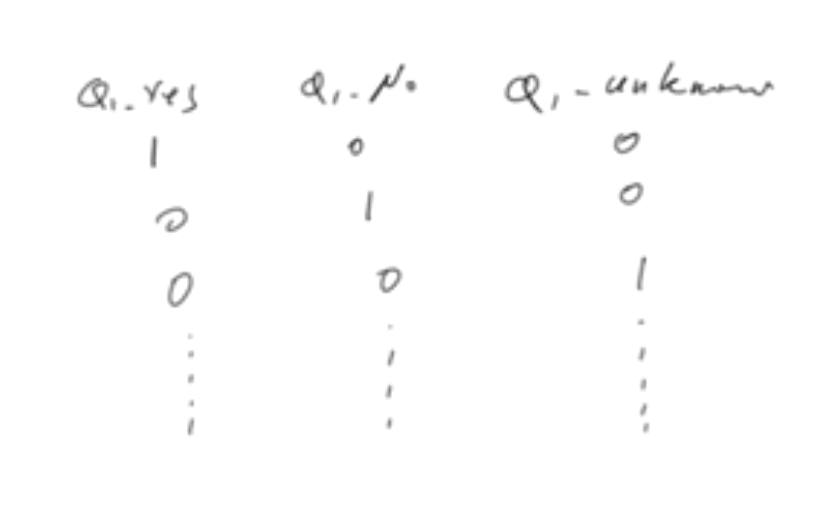 Q1-Yes Q1-No Q1-unknown
1 0 0
0 1 0
0 0 1